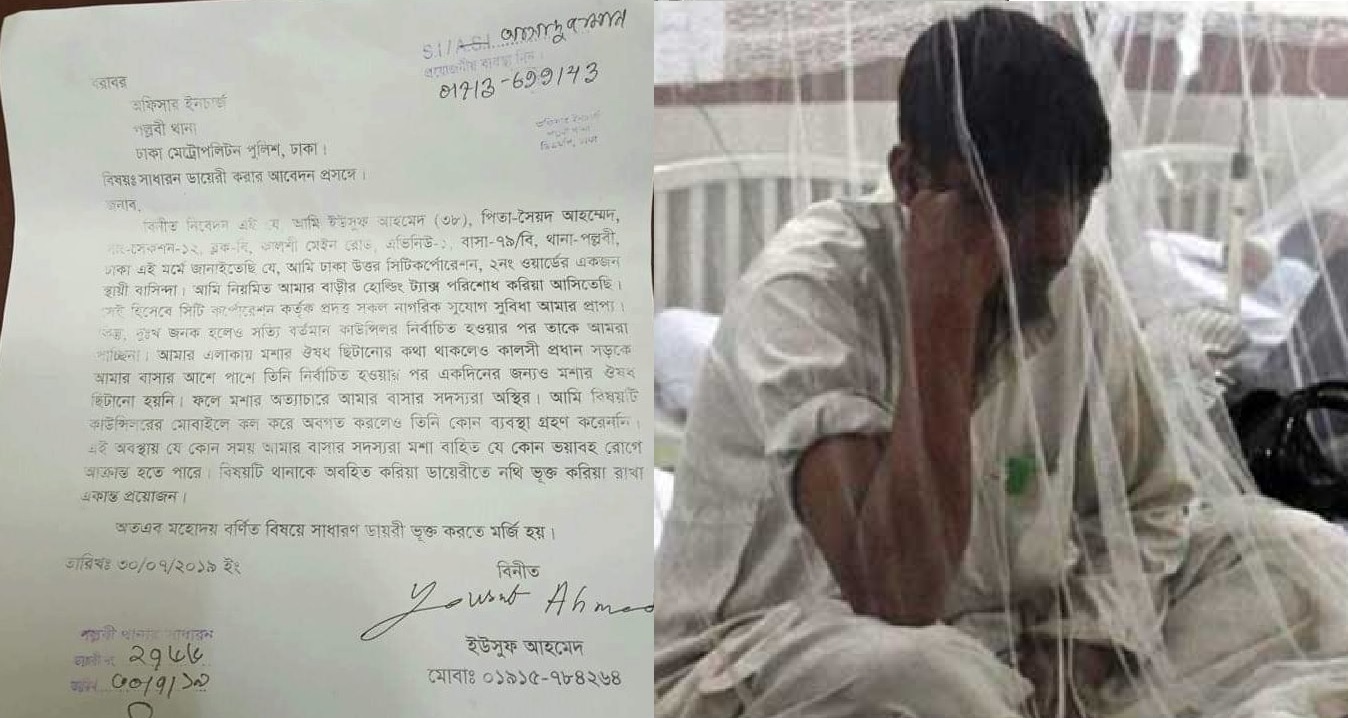 SI/ASI আসাদুজ্জামান
প্রয়োজনীয় ব্যবস্থা নিন।
01713-699143
বরাবর
অফিসার ইনচার্জ
পল্লবী থানা
ঢাকা মেট্রোপলিটন পুলিশ, ঢাকা।
বিষয়ঃ সাধারন ডায়েরী করার আবেদন প্রসঙ্গে।
জনাব,
বিনীত নিবেদন এই যে, আমি ইউসুফ আহমেদ (৩৮), পিতা-সৈয়দ আহম্মেদ,
সাং-সেকশন-১২, ব্লক-বি, কালশী মেইন রোড, এভিনিউ-১, বাসা-৭৯/বি, থানা-পল্লবী,
ঢাকা এই মর্মে জানাইতেছি যে, আমি ঢাকা উত্তর সিটিকর্পোরেশন, ২নং ওয়ার্ডের একজন
স্থায়ী বাসিন্দা। আমি নিয়মিত আমার বাড়ীর হোল্ডিং ট্যাক্স পরিশোধ করিয়া আসিতেছি।
সেই হিসেবে সিটি কর্পোরেশন কর্তৃক প্রদত্ত সকল নাগরিক সুযোগ সুবিধা আমার প্রাপ্য।
কিন্তু, দুঃখ জনক হলেও সত্যি বর্তমান কাউন্সিলর নির্বাচিত হওয়ার পর তাকে আমরা
পাচ্ছিনা। আমার এলাকায় মশার ঔষধ ছিটানোর কথা থাকলেও কালসী প্রধান সড়কে
আমার বাসার আশে পাশে তিনি নির্বাচিত হওয়ার পর একদিনের জন্যও মশার ঔষধ
ছিটানো হয়নি। ফলে মশার অত্যাচারে আমার বাসার সদস্যরা অস্থির। আমি বিষয়টি
কাউন্সিলরের মোবাইলে কল করে অবগত করলেও তিনি কোন ব্যবস্থা গ্রহণ করেননি।
এই অবস্থায় যে কোন সময় আমার বাসার সদস্যরা মশা বাহিত যে কোন ভয়াবহ রোগে
আক্রান্ত হতে পারে। বিষয়টি থানাকে অবহিত করিয়া ডায়েরীতে নথি ভূক্ত করিয়া রাখা
একান্ত প্রয়োজন।
অতএব মহোদয় বর্ণিত বিষয়ে সাধারণ ডায়রী ভূক্ত করতে মর্জি হয়।
তারিখঃ ৩০/০৭/২০১৯ ইং
বিনীত
Yousuf Ahmed
ইউসুফ আহমেদ
মোবাঃ ০১৯১৫-৭৮৪২৬৪
পল্লবী থানার সাধারন
ডায়রী নং ২৭৬৬
তারিখ ৩০/৭/১৯